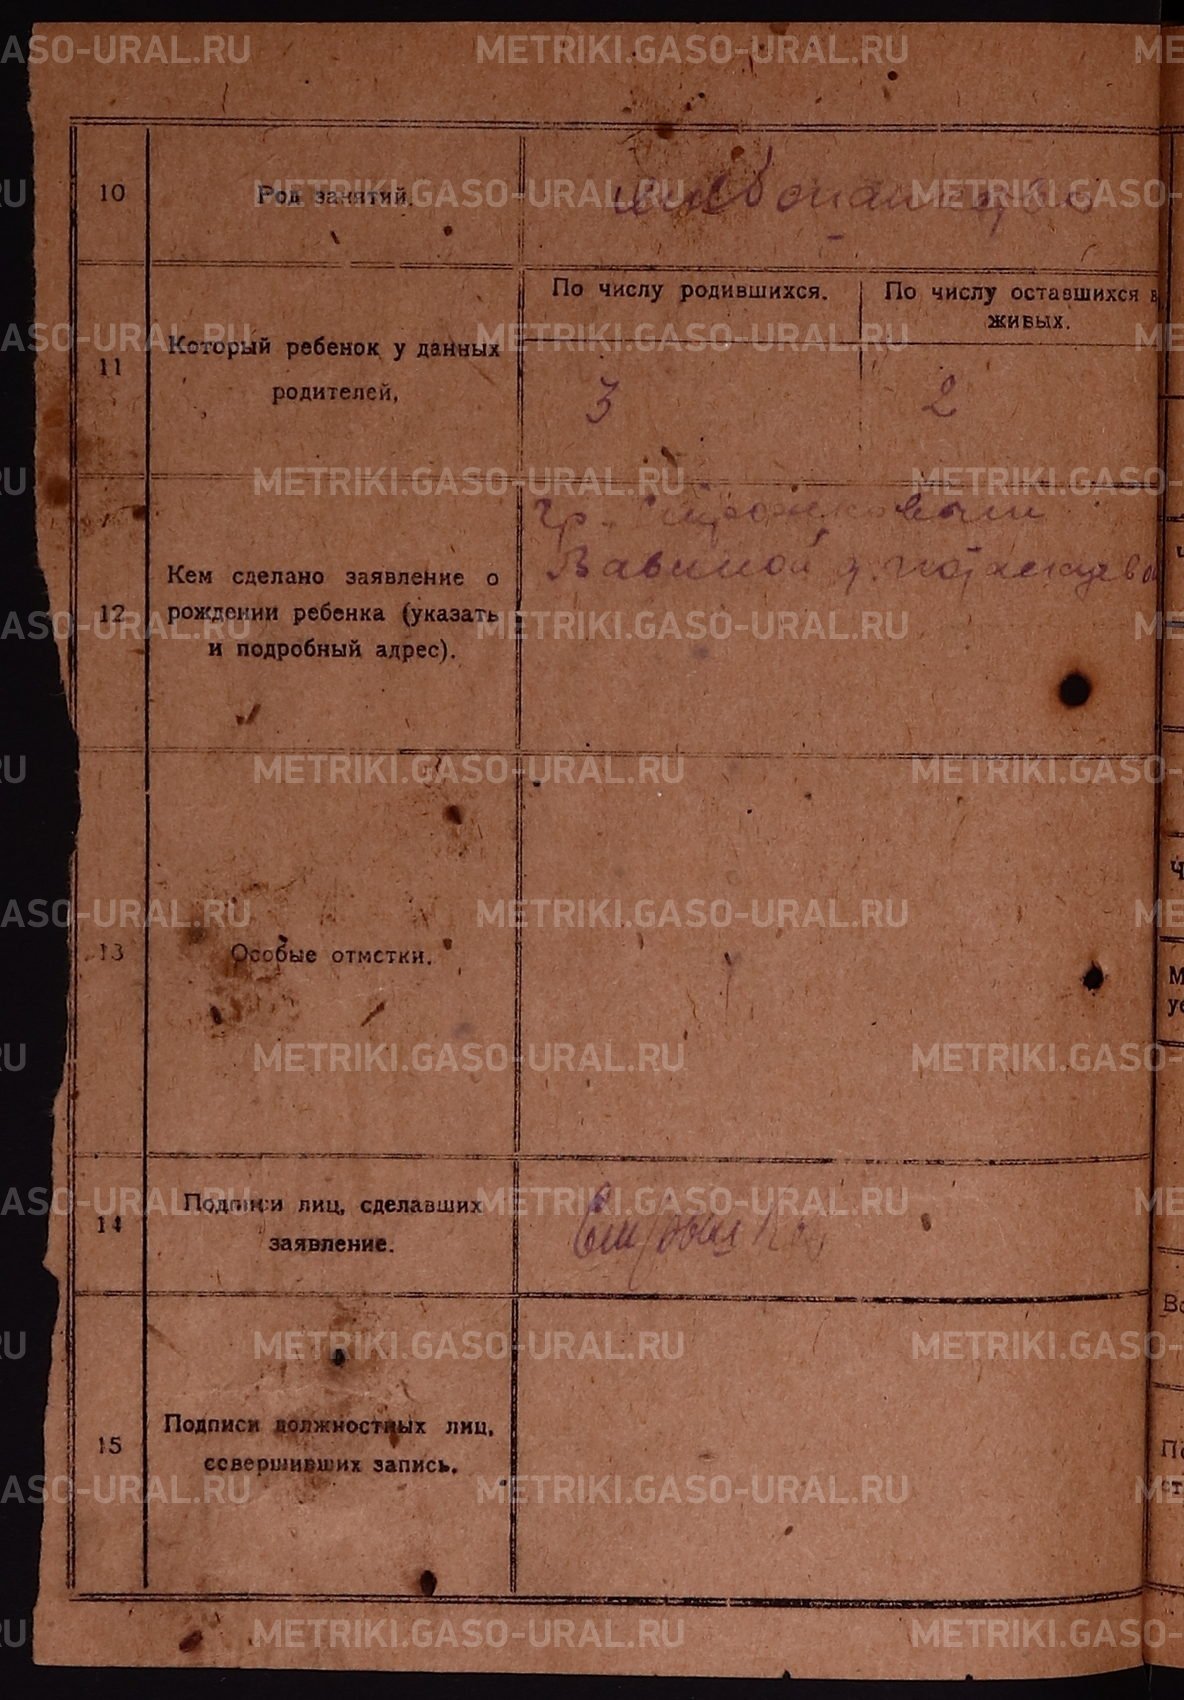 10
Род занятий.
хлебопашество
По числу родившихся.
По числу оставшихся в
живых.
11
Который ребенок у данных
родителей,
3
2
12
Кем сделано заявление о
рождении ребенка (указать
и подробный адрес).
гр.
13
Особые отметки.
14
Подписи лиц, сделавших
заявление.
15
Подписи должностных лиц,
совершивших запись.
METRIKI.GASO-URAL.RU